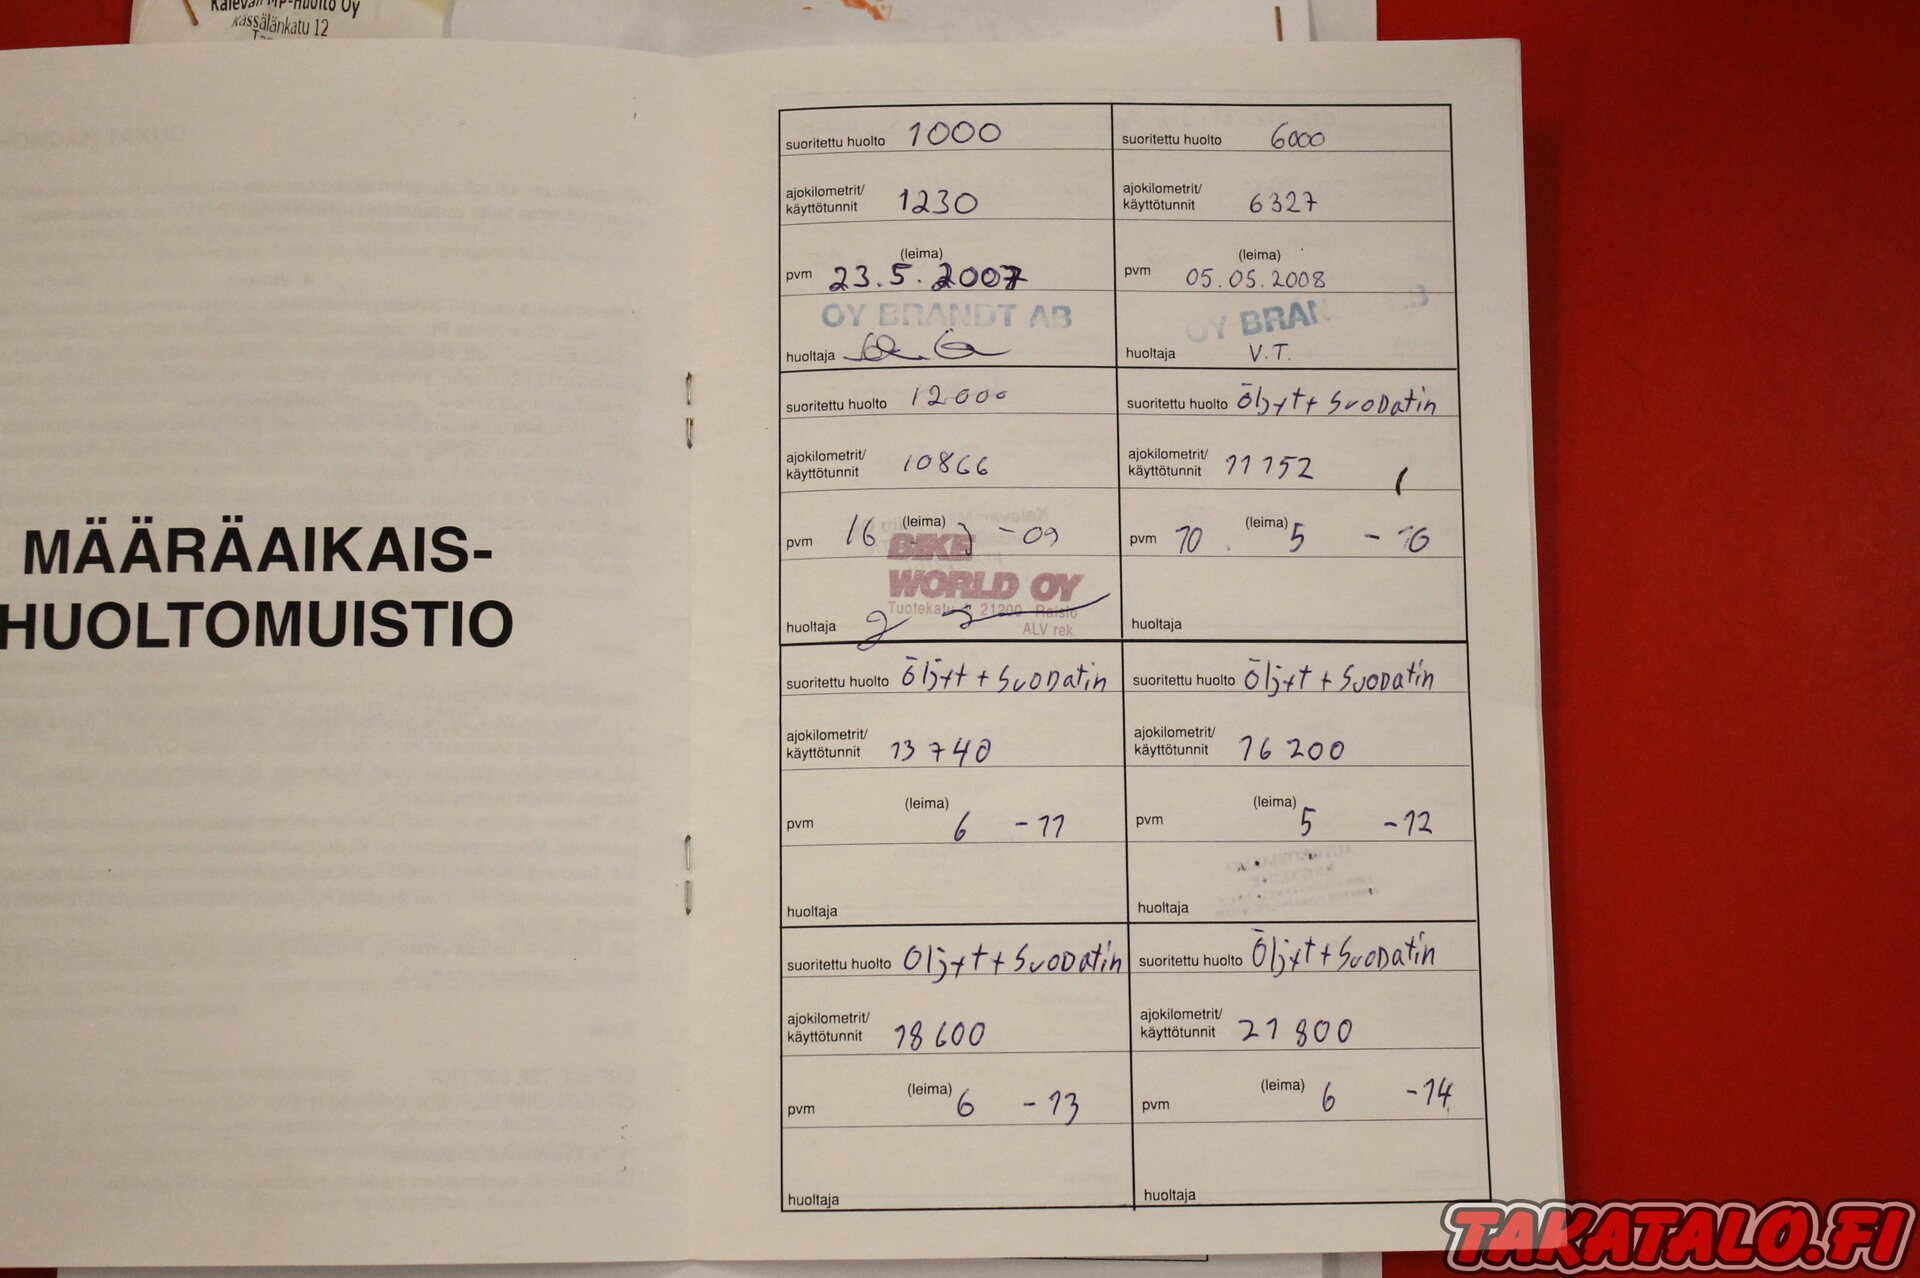 Kalevan MP-Huolto Oy
Kässälänkatu 12
MÄÄRÄAIKAIS-
HUOLTOMUISTIO
suoritettu huolto 1000
ajokilometrit/
käyttötunnit 1230
(leima)
pvm 23.5.2007
OY BRANDT AB
huoltaja
suoritettu huolto 6000
ajokilometrit/
käyttötunnit 6327
(leima)
pvm 05.05.2008
OY BRAN B
huoltaja V.T.
suoritettu huolto 12000
ajokilometrit/
käyttötunnit 10866
(leima)
pvm 16 -09
BIKE
WORLD OY
Tuotekatu 21200 Raisio
ALV rek.
huoltaja
suoritettu huolto Öljyt + Suodatin
ajokilometrit/
käyttötunnit 11152
(leima)
pvm 10. 5 - 10
huoltaja
suoritettu huolto Öljyt + Suodatin
ajokilometrit/
käyttötunnit 13740
(leima)
pvm 6 -11
huoltaja
suoritettu huolto Öljyt + Suodatin
ajokilometrit/
käyttötunnit 16200
(leima)
pvm 5 -12
huoltaja
suoritettu huolto Oljyt + Suodatin
ajokilometrit/
käyttötunnit 18600
(leima)
pvm 6 -13
huoltaja
suoritettu huolto Öljyt + Suodatin
ajokilometrit/
käyttötunnit 21800
(leima)
pvm 6 -14
huoltaja
TAKATALO.FI